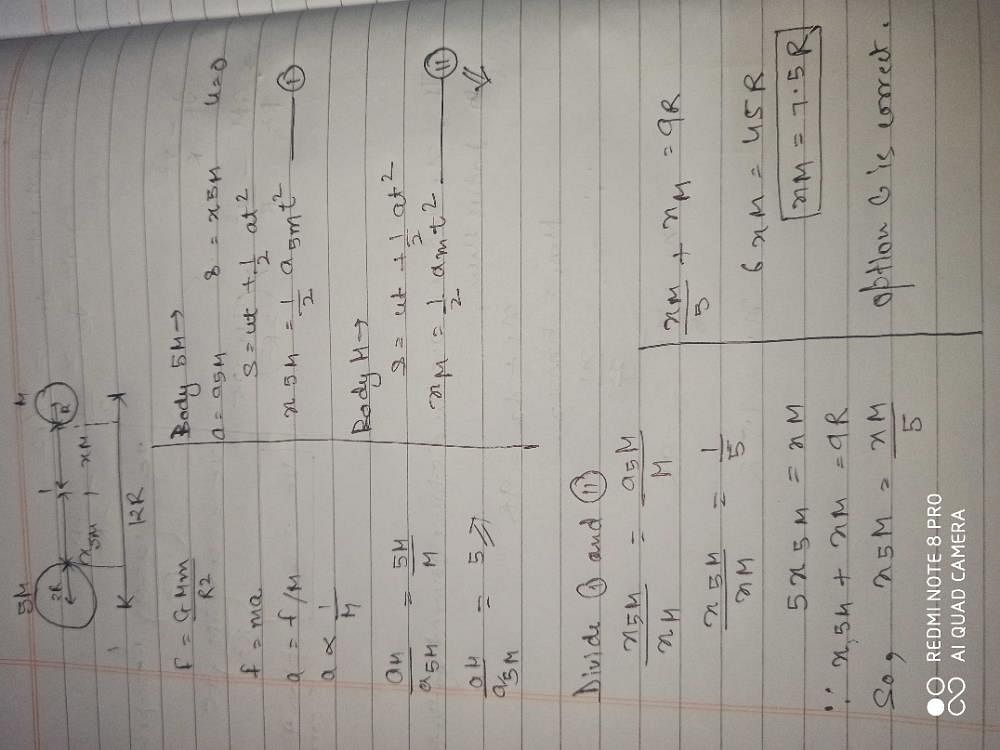 5M M
2R R
x5M xM
12R
f = GMm/R2
f = ma
a = f/M
a ∝ 1/M
aM/a5M = 5M/M
aM/a5M = 5
Body 5M →
a = a5M s = x5M u = 0
S = ut + 1/2 at²
x5M = 1/2 a5mt² —— (I)
Body M →
s = ut + 1/2 at²
xM = 1/2 amt² —— (II)
Divide (I) and (II)
x5M/xM = a5M/M
x5M/xM = 1/5
5x5M = xM
∴ x5M + xM = 9R
So, x5M = xM/5
xM/5 + xM = 9R
6xM = 45R
xM = 7.5R
option C is correct.
REDMI NOTE 8 PRO
AI QUAD CAMERA